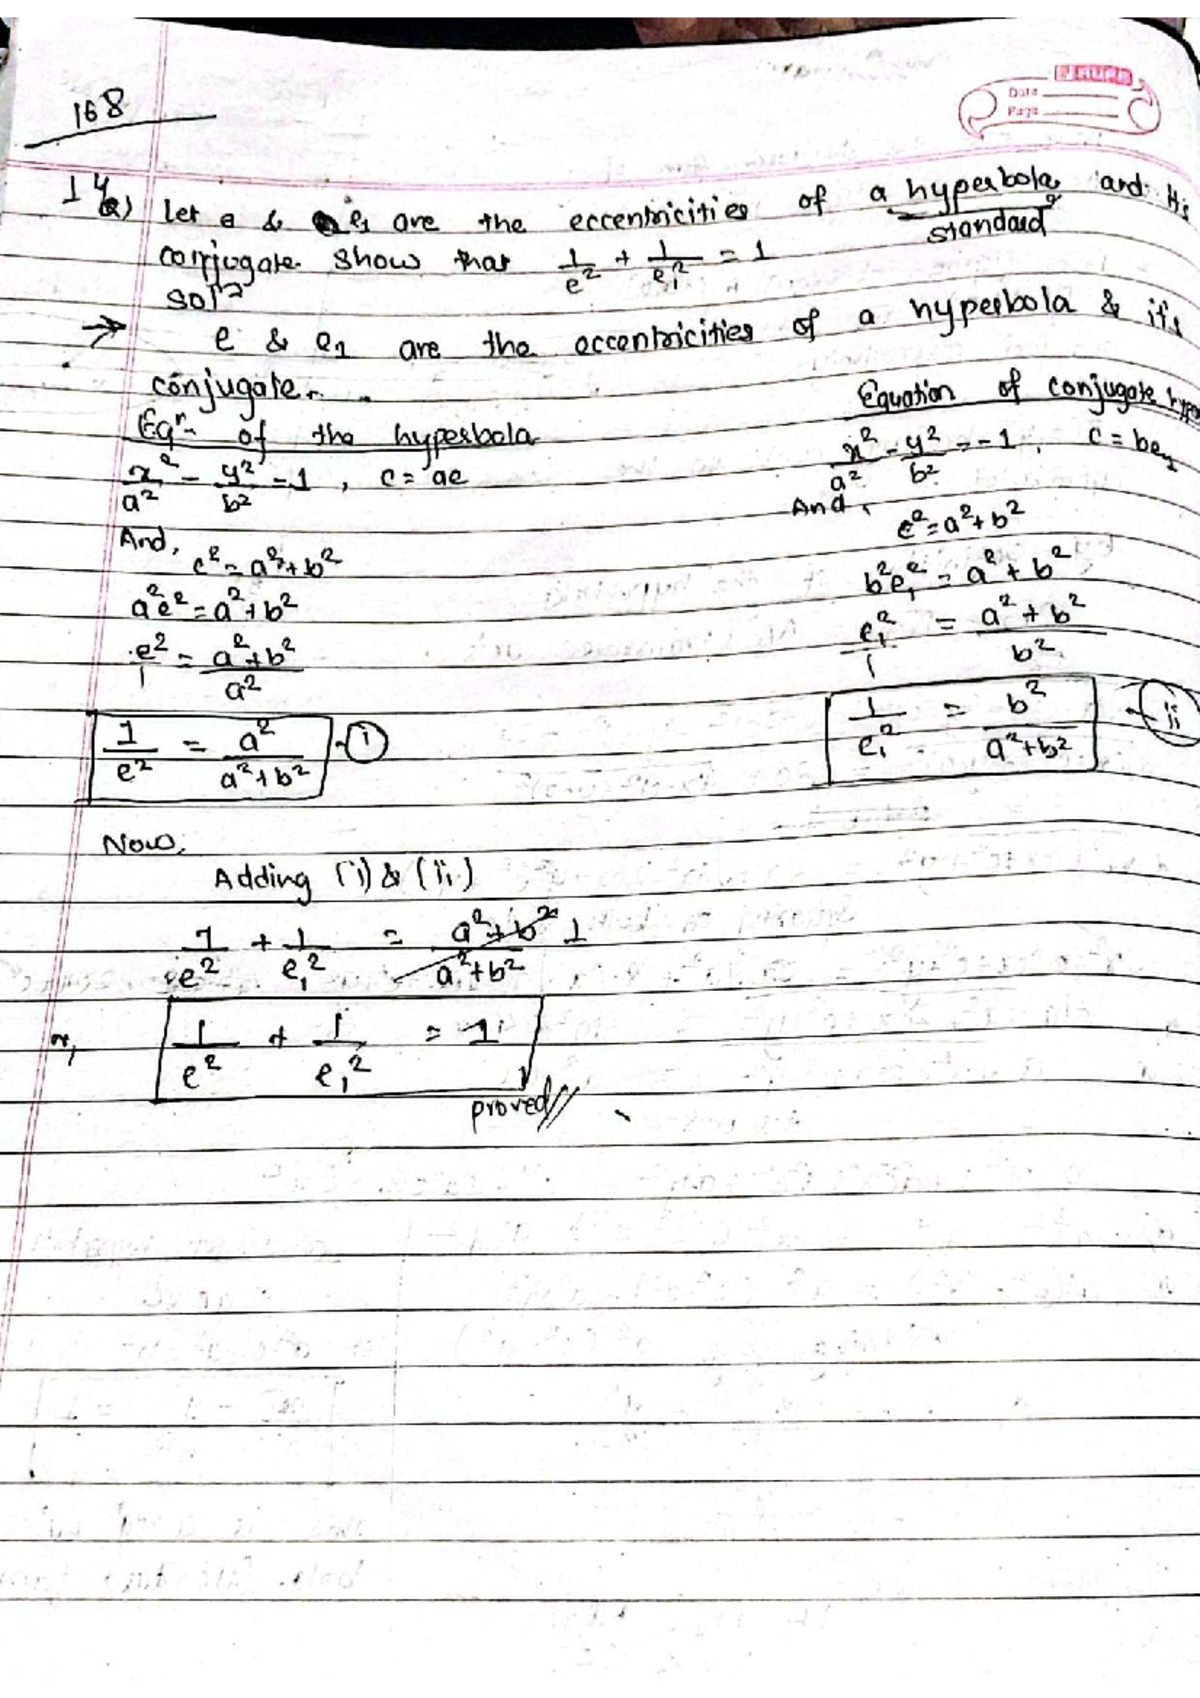 168
PRUPA
Date
Page
14 a) Let e & e₁ are the eccentricities of a hyperbola and its
standard
conjugate. Show that 1/e² + 1/e₁² = 1
Solⁿ
→ e & e₁ are the eccentricities of a hyperbola & it's
conjugate.
Eqⁿ of the hyperbola
x²/a² - y²/b² = 1, c = ae
And,
c² = a² + b²
a²e² = a² + b²
e²/1 = (a² + b²)/a²
1/e² = a²/(a² + b²) - (i)
Equation of conjugate
x²/a² - y²/b² = -1, c = be₁
And,
c² = a² + b²
b²e₁² = a² + b²
e₁²/1 = (a² + b²)/b²
1/e₁² = b²/(a² + b²) - (ii)
Now,
Adding (i) & (ii)
1/e² + 1/e₁² = (a² + b²)/(a² + b²) 1
or, 1/e² + 1/e₁² = 1
proved//